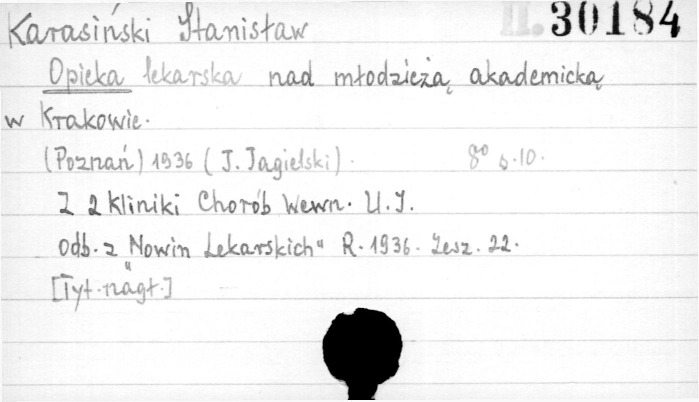 Karasiński Stanisław II. 30184
Opieka lekarska nad młodzieżą akademicką
w Krakowie.
(Poznań) 1936 (J. Jagielski). 8° s. 10.
Z 2 Kliniki Chorób Wewn. U.J.
odb. z „Nowin Lekarskich" R. 1936. Zesz. 22.
[Tyt. nagł.]